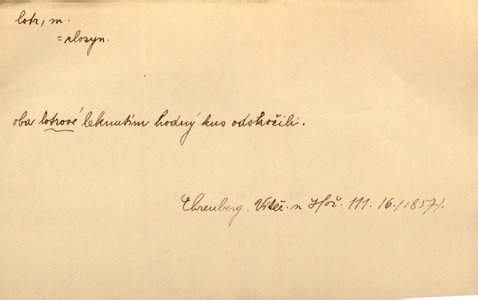 lotr, m.
= zlosyn.
oba lotrové leknutím hodný kus odskočili.
Ehrenberg. Vítěz. n Hoř. 111. 16. /1857/.